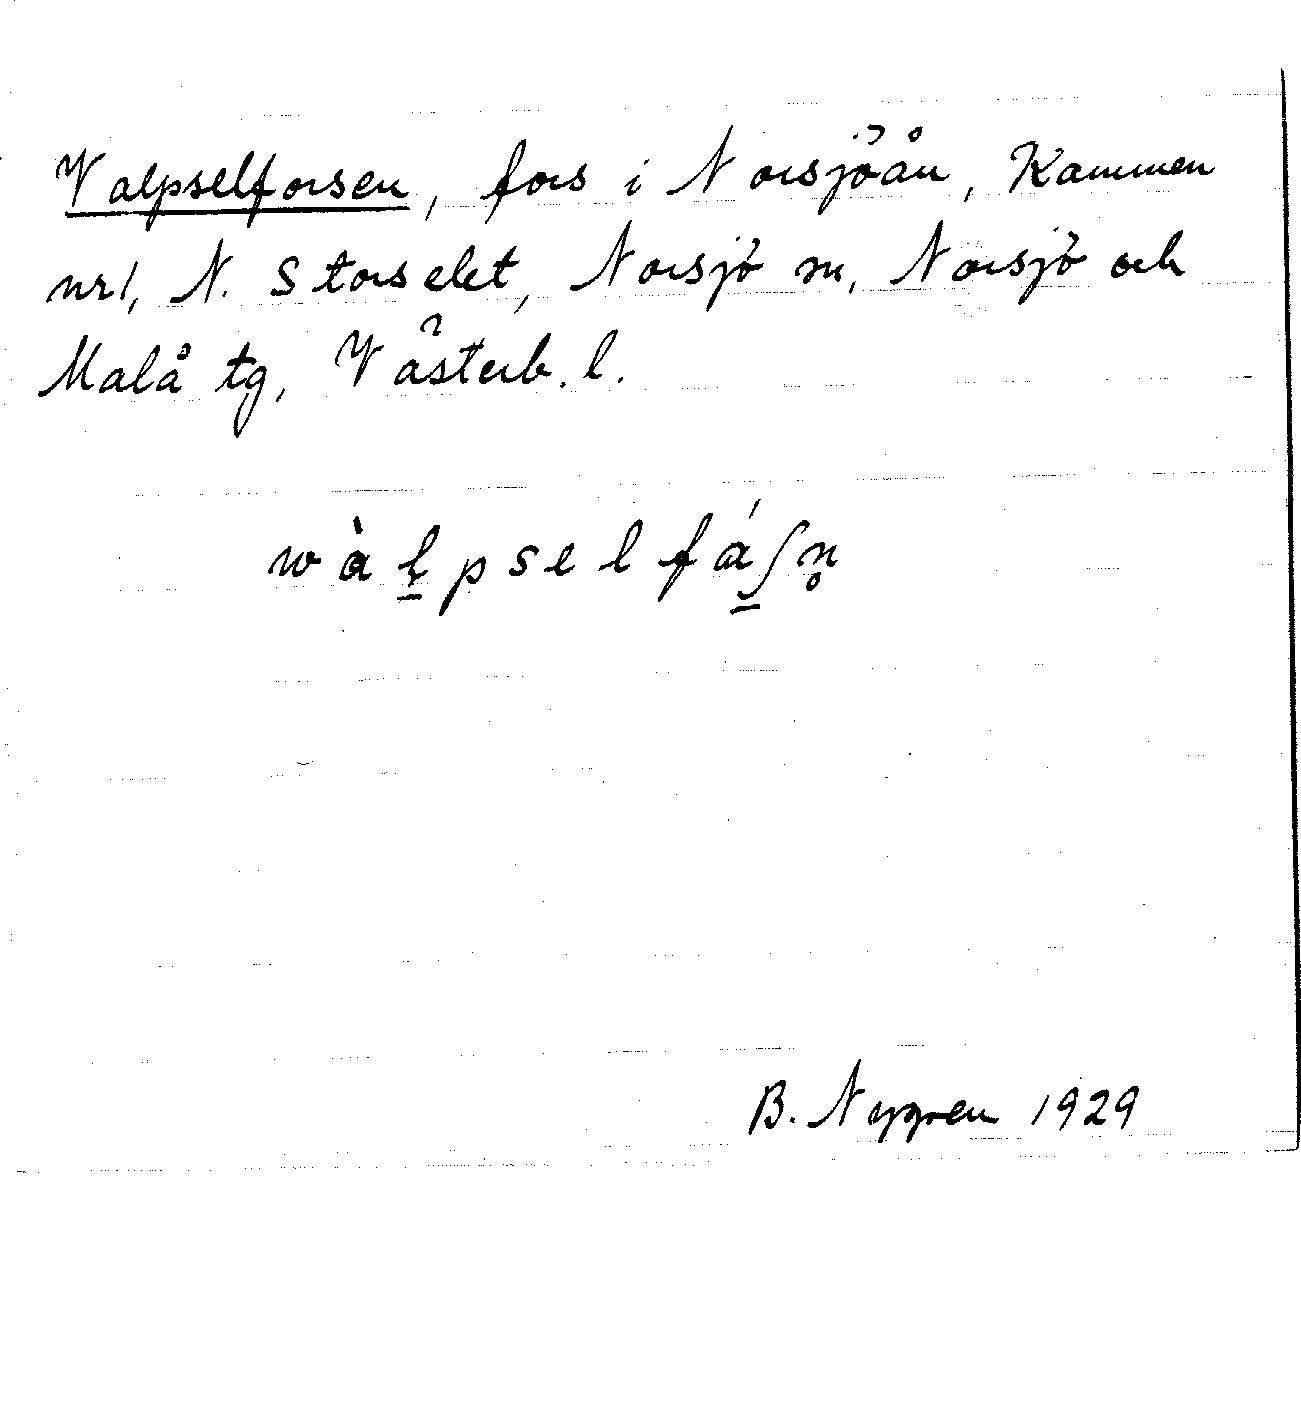 Valpselforsen, fors i Norsjöån, Kammen
nr 1, N. Storselet, Norsjö sn, Norsjö och
Malå tg, Västerb. l.
B. Nygren 1929